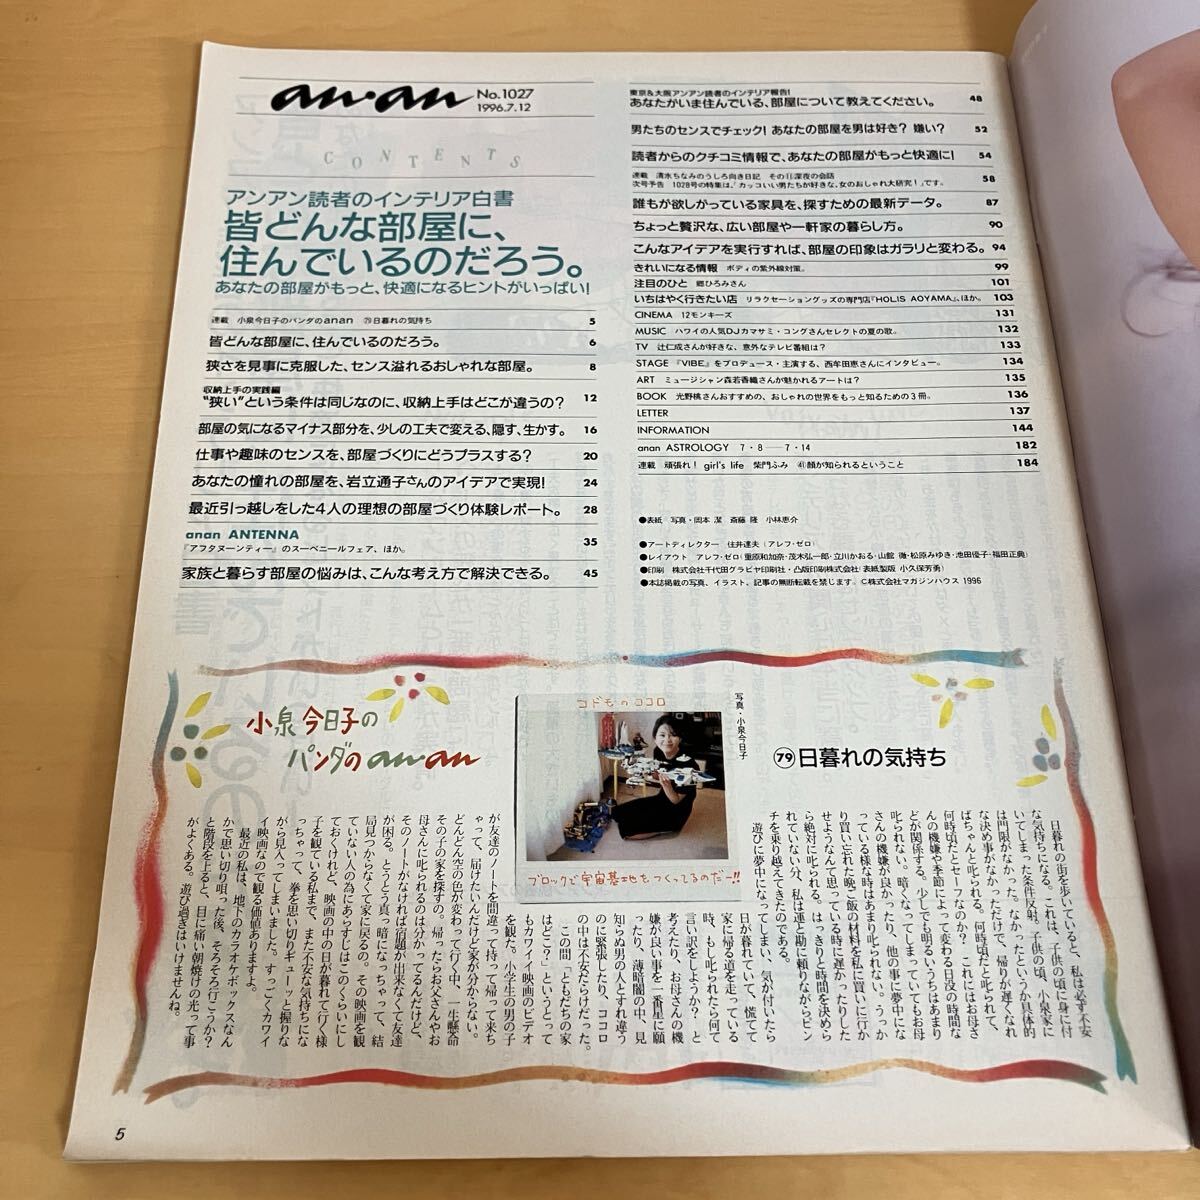 an・an
No.1027
1996.7.12
CONTENTS
アンアン読者のインテリア白書
皆どんな部屋に、
住んでいるのだろう。
あなたの部屋がもっと、快適になるヒントがいっぱい!
連載 小泉今日子のパンダのanan ㊆日暮れの気持ち 5
皆どんな部屋に、住んでいるのだろう。 6
狭さを見事に克服した、センス溢れるおしゃれな部屋。 8
収納上手の実践編
“狭い”という条件は同じなのに、収納上手はどこが違うの? 12
部屋の気になるマイナス部分を、少しの工夫で変える、隠す、生かす。 16
仕事や趣味のセンスを、部屋づくりにどうプラスする? 20
あなたの憧れの部屋を、岩立通子さんのアイデアで実現! 24
最近引っ越しをした4人の理想の部屋づくり体験レポート。 28
anan ANTENNA 35
『アフタヌーンティー』のスーベニールフェア、ほか。
家族と暮らす部屋の悩みは、こんな考え方で解決できる。 45
東京&大阪アンアン読者のインテリア報告!
あなたがいま住んでいる、部屋について教えてください。 48
男たちのセンスでチェック! あなたの部屋を男は好き? 嫌い? 52
読者からのクチコミ情報で、あなたの部屋がもっと快適に! 54
連載 清水ちなみのうしろ向き日記 その⑪深夜の会話 58
次号予告 1028号の特集は、「カッコいい男たちが好きな、女のおしゃれ大研究!」です。
誰もが欲しがっている家具を、探すための最新データ。 87
ちょっと贅沢な、広い部屋や一軒家の暮らし方。 90
こんなアイデアを実行すれば、部屋の印象はガラリと変わる。 94
きれいになる情報 ボディの紫外線対策。 99
注目のひと 郷ひろみさん 101
いちはやく行きたい店 リラクセーショングッズの専門店『HOLIS AOYAMA』、ほか。 103
CINEMA 12モンキーズ 131
MUSIC ハワイの人気DJカマサミ・コングさんセレクトの夏の歌。 132
TV 辻仁成さんが好きな、意外なテレビ番組は? 133
STAGE 『VIBE』をプロデュース・主演する、西牟田恵さんにインタビュー。 134
ART ミュージシャン森若香織さんが魅かれるアートは? 135
BOOK 光野桃さんおすすめの、おしゃれの世界をもっと知るための3冊。 136
LETTER 137
INFORMATION 144
anan ASTROLOGY 7・8——7・14 182
連載 頑張れ! girl's life 柴門ふみ ㊶顔が知られるということ 184
●表紙 写真・岡本 潔 斎藤 隆 小林恵介
●アートディレクター 住井達夫(アレフ・ゼロ)
●レイアウト アレフ・ゼロ(重原和加奈・茂木弘一郎・立川かおる・山舘 徹・松原みゆき・池田優子・福田正典)
●印刷 株式会社千代田グラビヤ印刷社・凸版印刷株式会社(表紙製版 小久保芳勇)
●本誌掲載の写真、イラスト、記事の無断転載を禁じます。©株式会社マガジンハウス 1996
小泉今日子の
パンダのan・an
コドモのココロ
ブロックで宇宙基地をつくってるのだー!!
写真・小泉今日子
79 日暮れの気持ち
日暮れの街を歩いていると、私は必ず不安
な気持ちになる。これは、子供の頃に身に付
いてしまった条件反射。子供の頃、小泉家に
は門限がなかった。なかったというか具体的
な決め事がなかっただけで、帰りが遅くなれ
ばちゃんと叱られる。何時頃だと叱られて、
何時頃だとセーフなのか? これにはお母さ
んの機嫌や季節によって変わる日没の時間な
どが関係する。少しでも明るいうちはあまり
叱られない。暗くなってしまっていてもお母
さんの機嫌が良かったり、他の事に夢中にな
っている様な時はあまり叱られない。うっか
り買い忘れた晩ご飯の材料を私に買いに行か
せようなんて思っている時に遅かったりした
ら絶対に叱られる。はっきりと時間を決めら
れていない分、私は運と勘に頼りながらピン
チを乗り越えてきたのである。
遊びに夢中になってしまい、気が付いたら
日が暮れていて、慌てて
家に帰る道を走っている
時、もし叱られたら何て
言い訳をしようか? と
考えたり、お母さんの機
嫌が良い事を一番星に願
ったり、薄暗闇の中、見
知らぬ男の人とすれ違う
のに緊張したり、ココロ
の中は不安だらけだった。
この間「ともだちの家
はどこ?」というとって
もカワイイ映画のビデオ
を観た。小学生の男の子
が友達のノートを間違って持って帰って来ち
ゃって、届けたいんだけど家が分からない。
どんどん空の色が変わって行く中、一生懸命
その子の家を探すの。帰ったらお父さんやお
母さんに叱られるのは分かってるんだけど、
そのノートがなければ宿題が出来なくて友達
が困る。とうとう真っ暗になっちゃって、結
局見つからなくて家に戻るの。その映画を観
ていない人の為にあらすじはこのくらいにし
ておくけれど、映画の中の日が暮れて行く様
子を観ている私まで、また不安な気持ちにな
っちゃって、拳を思い切りギューッと握りな
がら見入ってしまいました。すっごくカワイ
イ映画なので観る価値ありますよ。
最近の私は、地下のカラオケボックスなん
かで思い切り唄った後、そろそろ行こうか?
と階段を上ると、目に痛い朝焼けの光って事
がよくある。遊び過ぎはいけませんね。
5